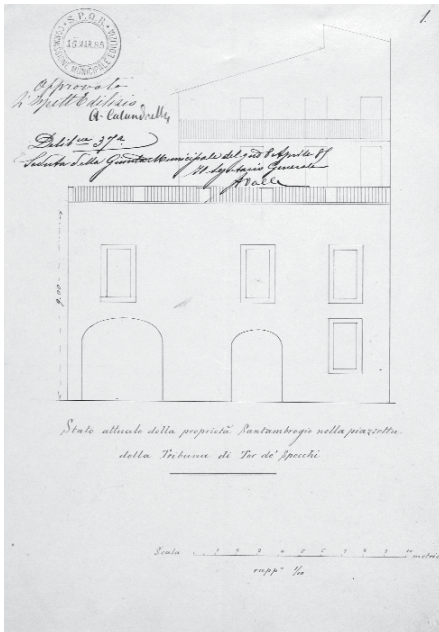 1.
S.P.Q.R.
COMMISSIONE MUNICIPALE EDILIZIA
16 MAR. 85
Approvato
L'Ispett. Edilizio
A. Calandrelli
Delib.ne 37a
Seduta della Giunta Municipale del giorno 8 Aprile 85
Il Segretario Generale
A Valle
9.00
Stato attuale della proprietà Santambrogio nella piazzetta
della Tribuna di Tor de' Specchi
Scala
metri
rapp.o